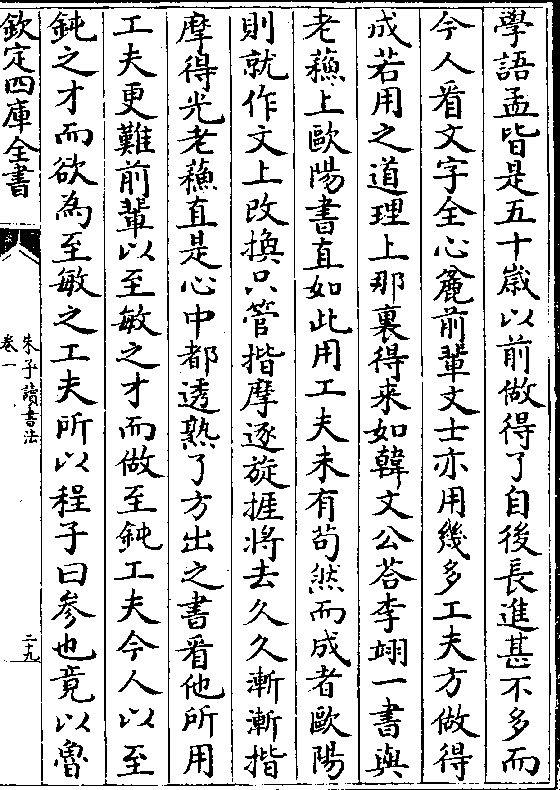 學語孟皆是五十歳以前做得了自後長進甚不多而
今人看文字全心麄前輩文士亦用幾多工夫方做得
成若用之道理上那裏得來如韓文公荅李翊一書與
老蘓上歐陽書直如此用工夫未有苟然而成者歐陽
則就作文上改換只管揩摩逐旋捱將去久久漸漸揩
摩得光老蘓直是心中都透熟了方出之書看他所用
工夫更難前輩以至敏之才而做至鈍工夫今人以至
鈍之才而欲為至敏之工夫所以程子曰参也竟以魯
欽定四庫全書
朱子讀書法
卷一
二九